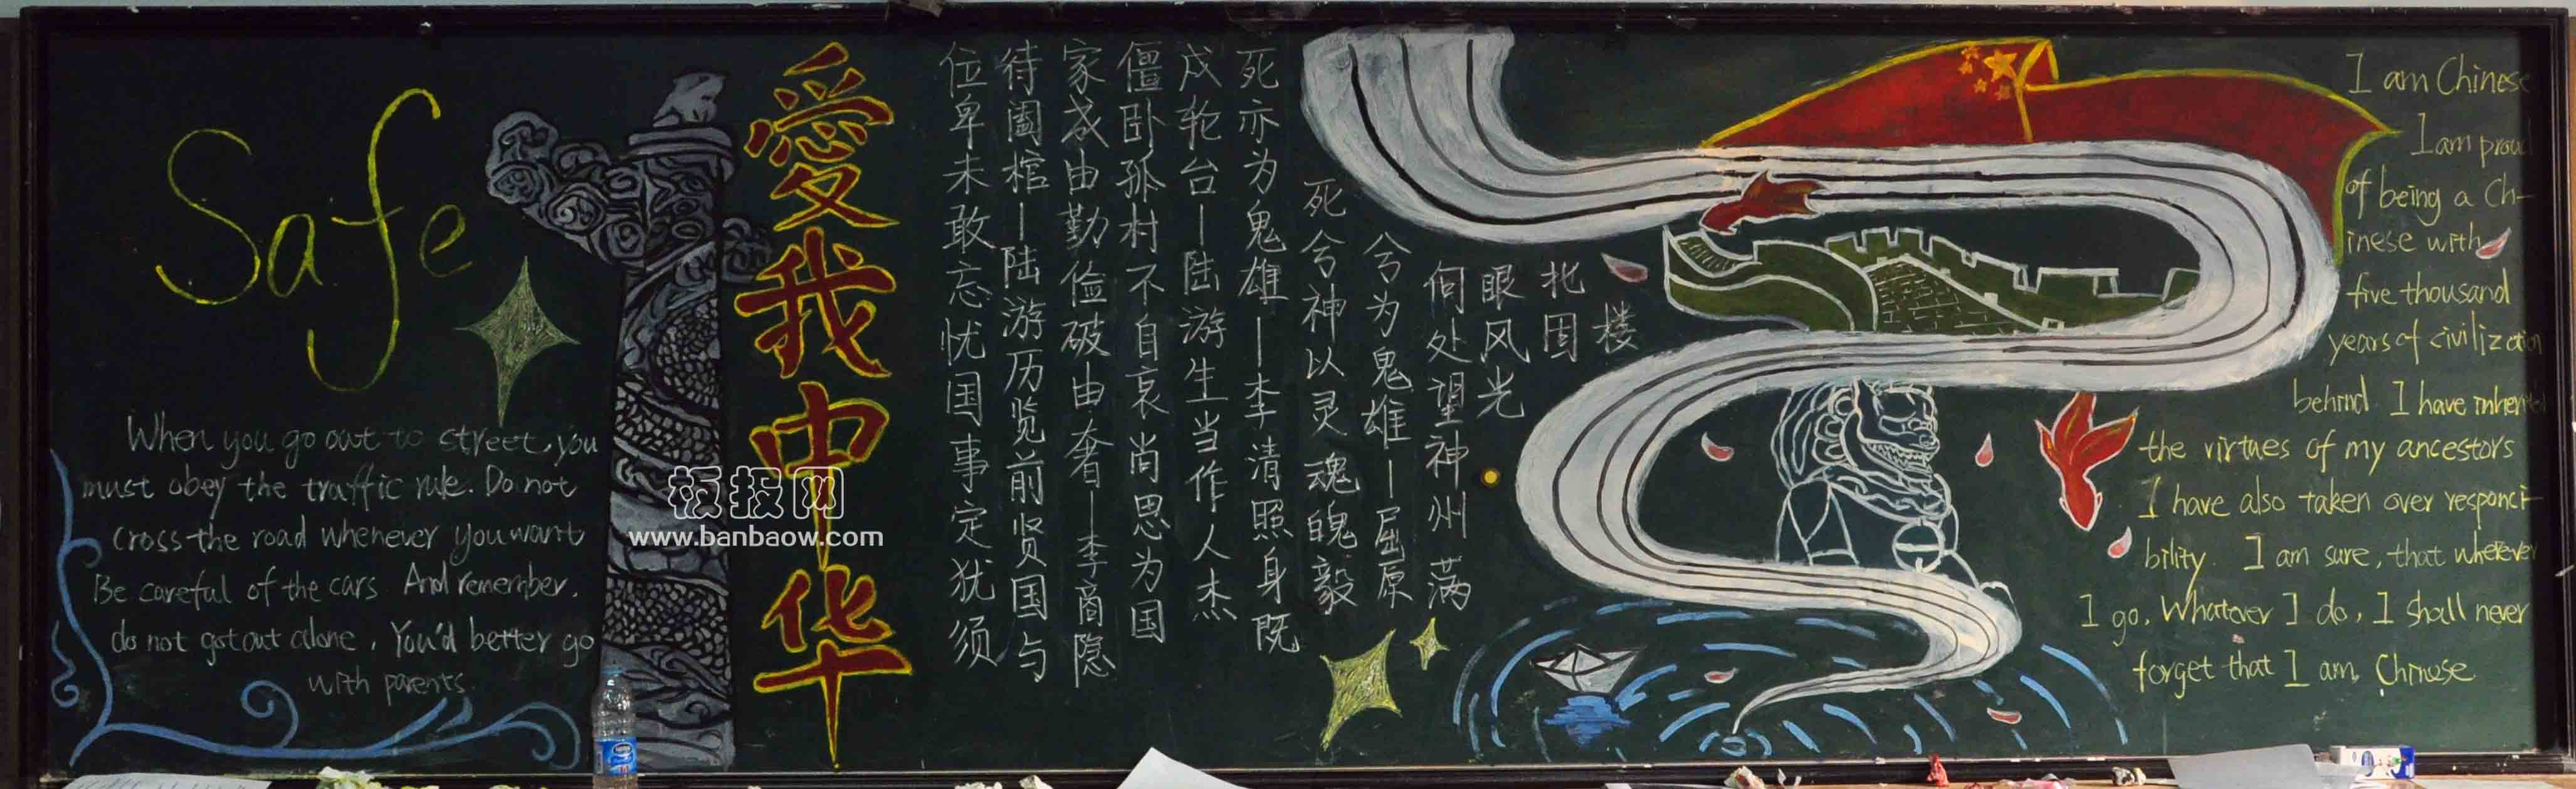 Safe
When you go out to street, you
must obey the traffic rule. Do not
cross the road whenever you want
Be careful of the cars And remember,
do not got out alone, You'd better go
with parents.
愛我中华
板报网
www.banbaow.com
位卑未敢忘忧国事定犹须
待阖棺—陆游历览前贤国与
家成由勤俭破由奢—李商隐
僵卧孤村不自哀尚思为国
戍轮台—陆游生当作人杰
死亦为鬼雄—李清照身既
死兮神以灵魂魄毅
兮为鬼雄—屈原
何处望神州满
眼风光
北固
楼
I am Chinese
I am proud
of being a Ch-
inese with
five thousand
years of civilization
behind. I have inherited
the virtues of my ancestors
I have also taken over responci-
bility. I am sure, that wherever
I go, Whatever I do, I shall never
forget that I am Chinese